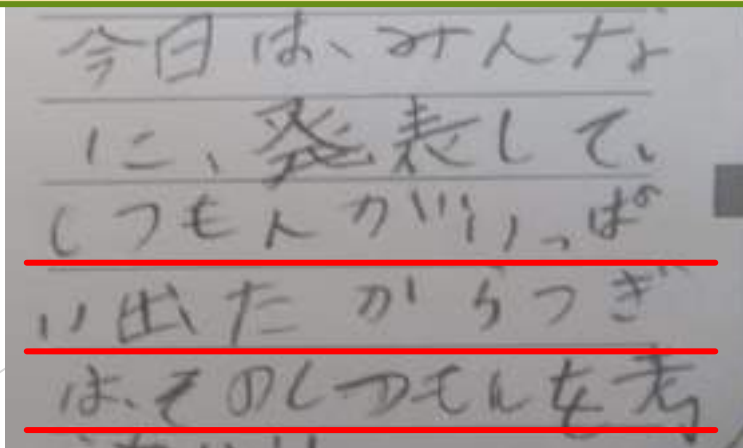 今日は、みんな
に、発表して、
しつもんがいっぱ
い出たからつぎ
は、そのしつもんを考